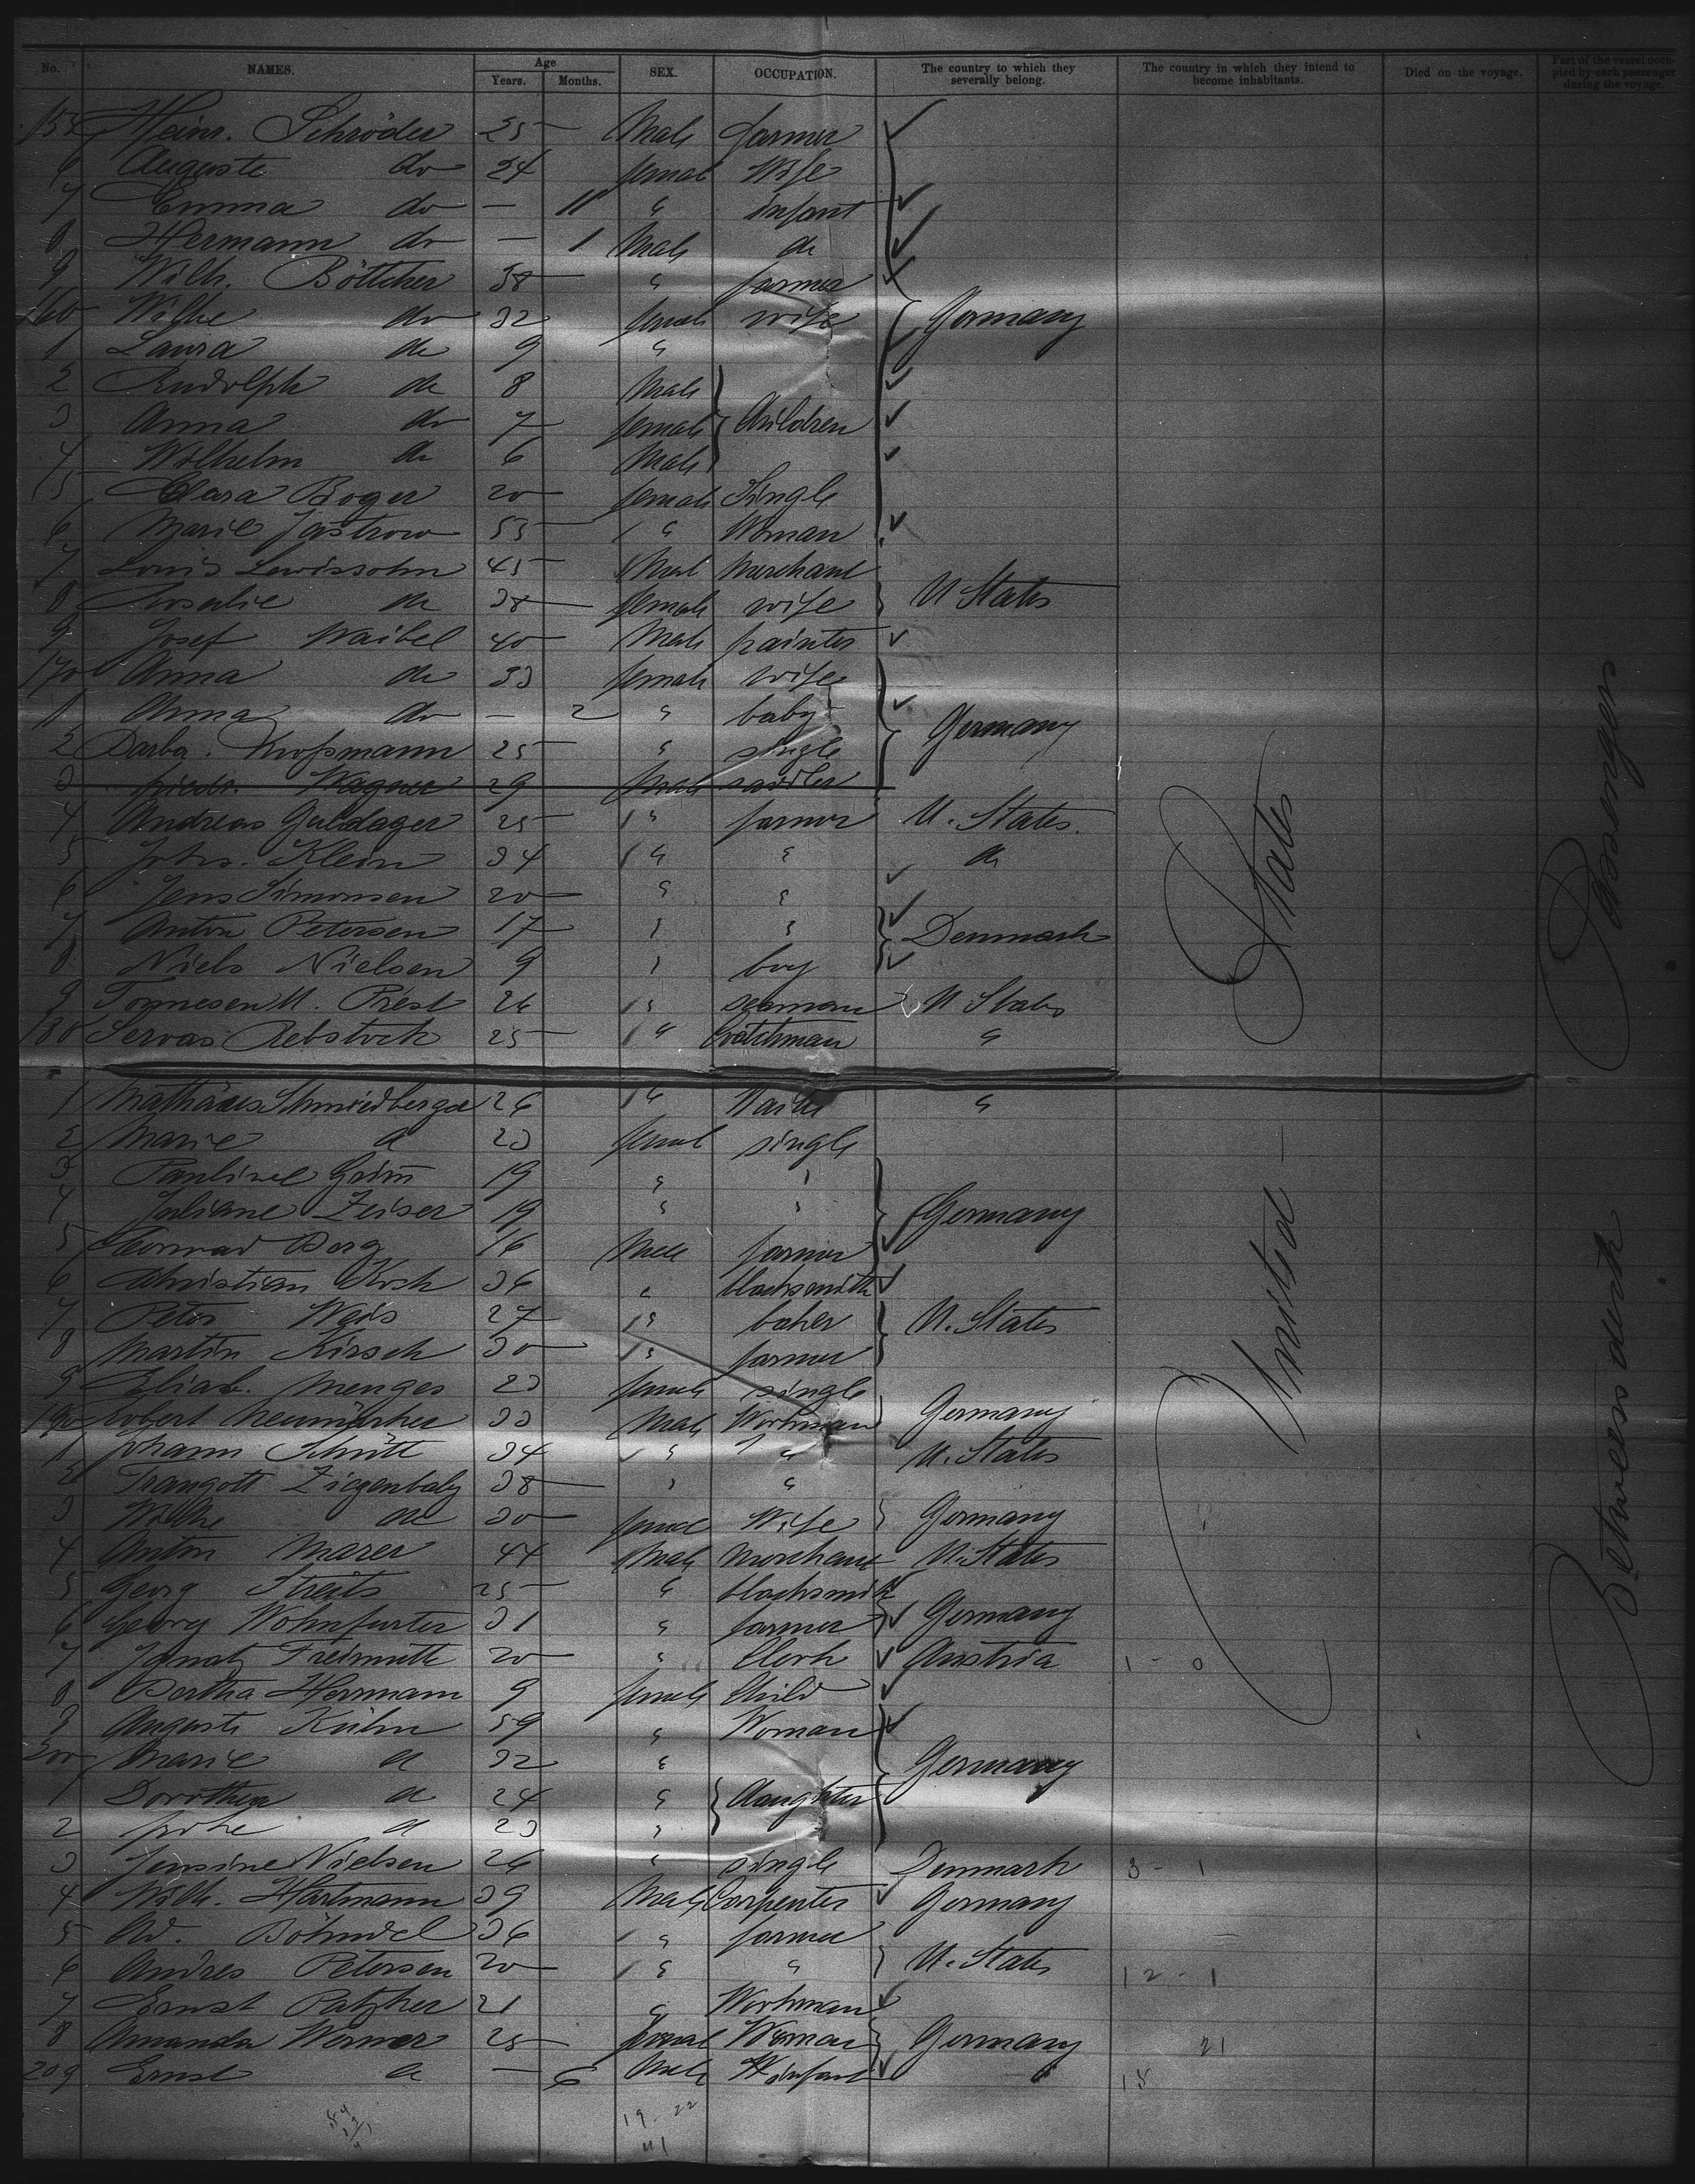 No. NAMES. Age Years. Months. SEX. OCCUPATION. The country to which they severally belong. The country in which they intend to become inhabitants. Died on the voyage. Part of the vessel occupied by each passenger during the voyage.
155 Heinr. Schröder 25 Male farmer
6 Auguste do 24 femal Wife
7 Emma do — 11 " infant
8 Hermann do — 1 Male do
9 Wilh. Böttcher 38 " farmer
160 Wilhe do 32 female wife Germany
1 Laura do 9 "
2 Rudolph do 8 Male
3 Anna do 7 female Children
4 Wilhelm do 6 Male
5 Clara Boger 20 female Single
6 Marie Jastrow 53 " Woman
7 Louis Lewissohn 45 Male Merchant
8 Rosalie do 38 female wife U States
9 Josef Waibel 40 Male painter
170 Anna do 33 female wife
1 Anna do — 2 " baby Germany
2 Barba. Kroßmann 25 " single
3 Friedr. Wagner 29 Male sadler
4 Andreas Guldager 25 " farmer U. States.
5 Johs. Klein 34 " " do
6 Jens Simonsen 20 " "
7 Anton Petersen 17 " " Denmark
8 Niels Nielsen 9 " boy
9 Tonnesen M. Prest 26 " seaman U States
180 Servas Rebstock 25 " Watchman "
1 Mathäus Schmiedberger 26 " "
2 Marie do 23 femal single
3 Pauline Grim̄ 19 " "
4 Juliane Zeiser 19 " " Germany
5 Conrad Berg 16 Male farmer
6 Christian Koch 36 " blacksmith
7 Peter Weis 27 " baker U. States
8 Martin Kirsch 30 " farmer
9 Elisab. Menges 23 female single
190 Robert Neumärker 33 Male Workman Germany
1 Johann Schütt 34 " " U. States
2 Traugott Ziegenbalg 38 " "
3 Wilhe do 30 femal Wife Germany
4 Anton Marer 44 Male Merchant U. States
5 Georg Streits 25 " blacksmith
6 Georg Wohnfurter 31 " farmer Germany
7 Ignatz Freimuth 20 " Clerk Austria 1 - 0
8 Bertha Herrmann 9 female Child
9 Auguste Kühn 59 " Woman
200 Marie do 32 " Germany
1 Dorothea do 24 " daughter
2 do 23 "
3 Jensine Nielsen 26 " single Denmark 3 - 1
4 Wilh. Hartmann 39 Male Carpenter Germany
5 Ad. Böhndel 36 " farmer
6 Andres Petersen 20 " " U. States 12 - 1
7 Ernst Patzker 21 " Workman
8 Amanda Werner 25 femal Woman Germany 21
209 Ernst do — 6 Male infant 18
19 - 22
41
United States
Betweendeck Passengers